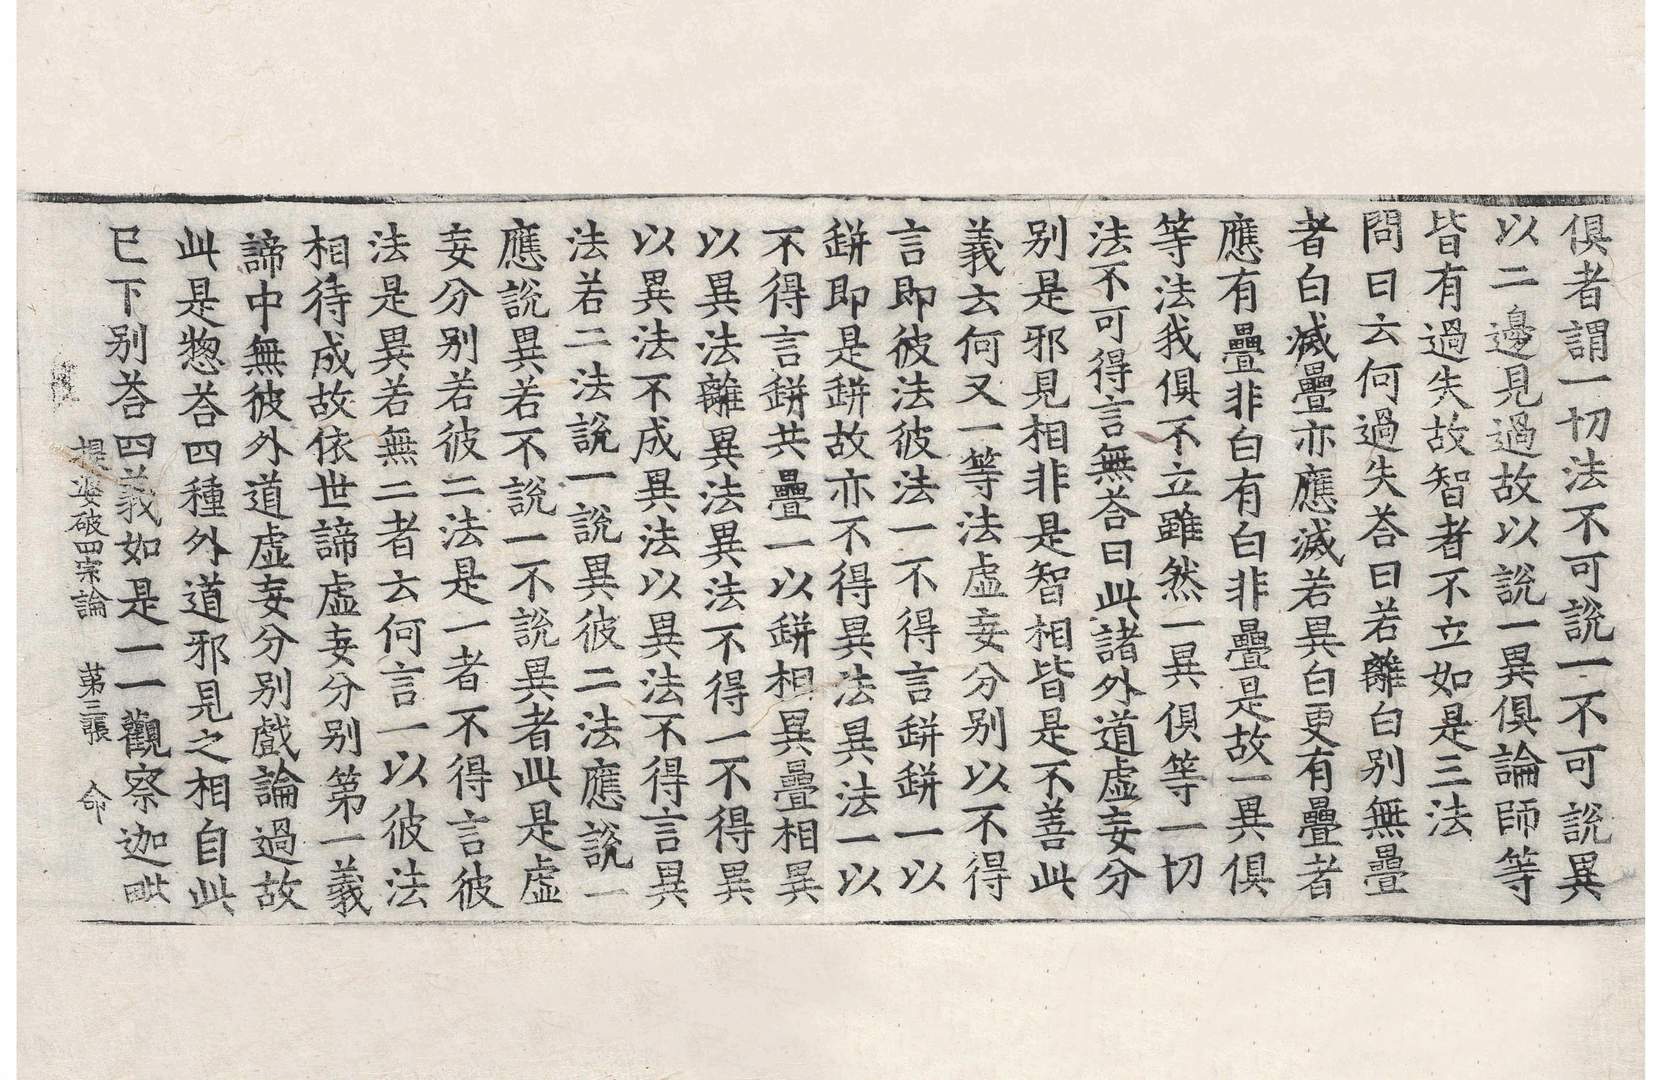 俱者謂一切法不可說一不可說異
以二邊見過故以說一異俱論師等
皆有過失故智者不立如是三法
問曰云何過失荅曰若離白別無疊
者白滅疊亦應滅若異白更有疊者
應有疊非白有白非疊是故一異俱
等法我俱不立雖然一異俱等一切
法不可得言無荅曰此諸外道虛妄分
別是邪見相非是智相皆是不善此
義云何又一等法虛妄分別以不得
言即彼法彼法一不得言缾缾一以
缾即是缾故亦不得異法異法一以
不得言缾共疊一以缾相異疊相異
以異法離異法異法不得一不得異
以異法不成異法以異法不得言異
法若二法說一說異彼二法應說一
應說異若不說一不說異者此是虛
妄分別若彼二法是一者不得言彼
法是異若無二者云何言一以彼法
相待成故依世諦虛妄分別第一義
諦中無彼外道虛妄分別戲論過故
此是惣荅四種外道邪見之相自此
已下別荅四義如是一一觀察迦毗
提婆破四宗論　苐三張　命